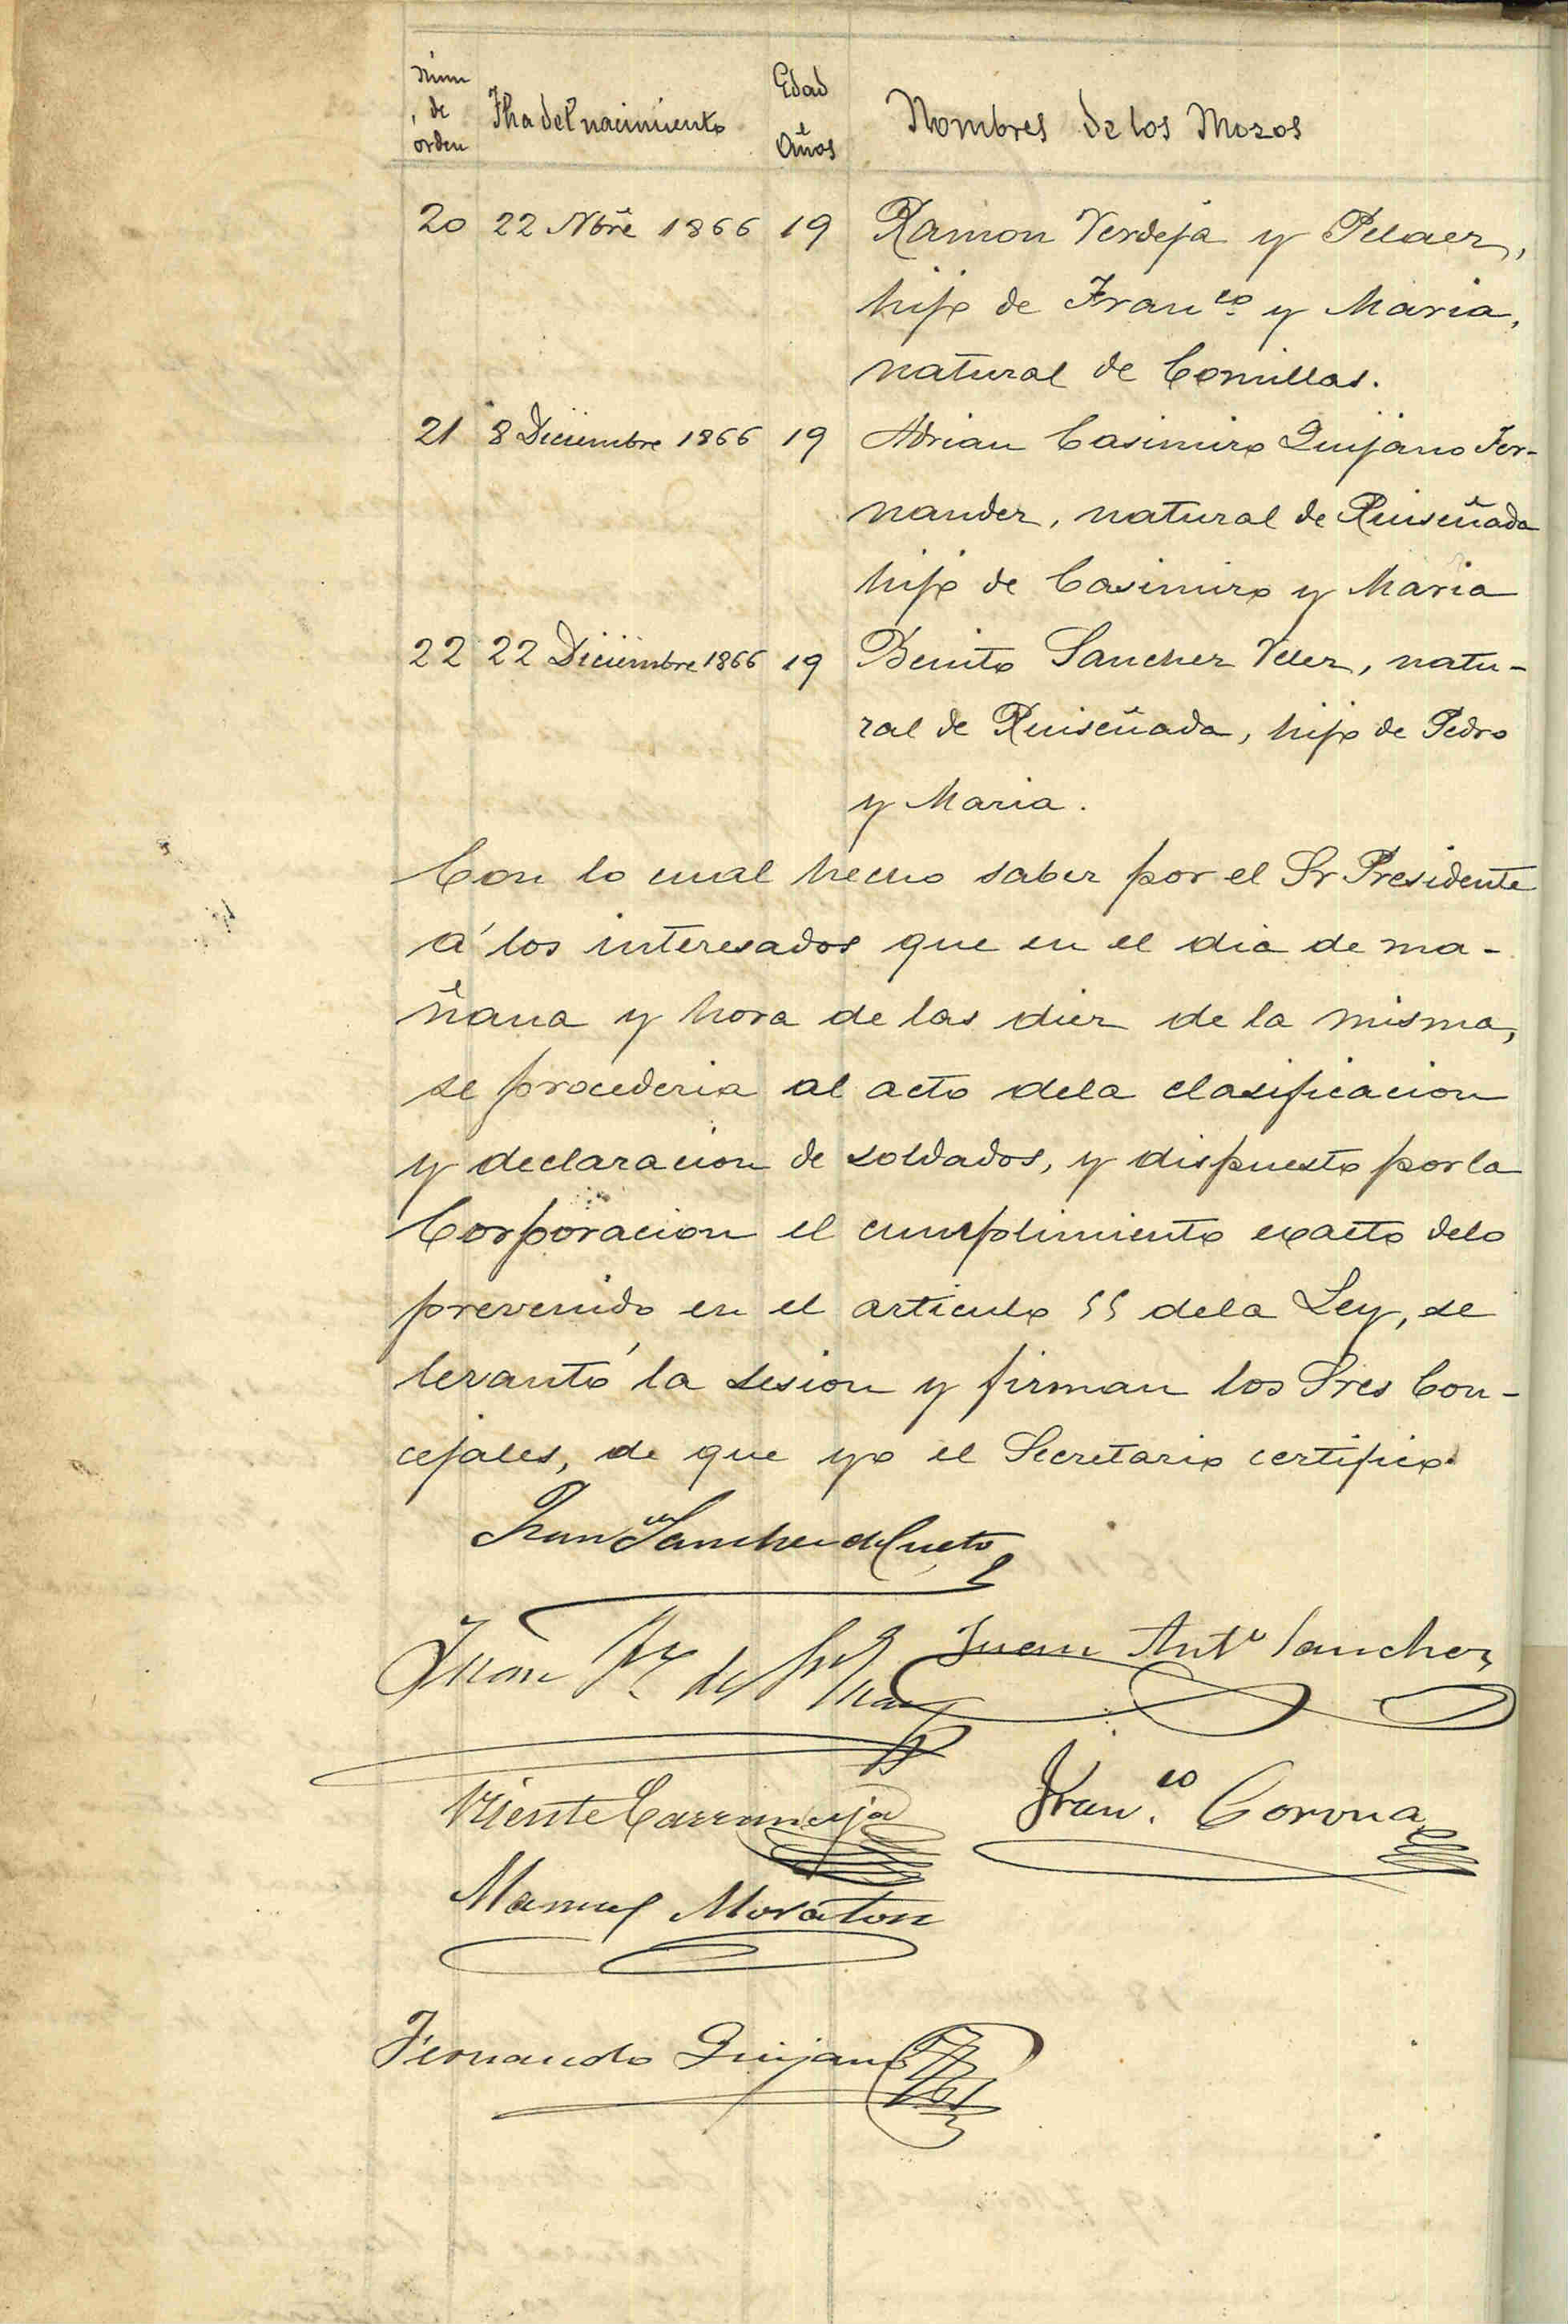 Núm de orden Fha del nacimiento Edad Años Nombres de los Mozos
20 22 Nbre 1866 19 Ramon Verdeja y Pelaez,
hijo de Franco y Maria,
natural de Comillas.
21 8 Diciembre 1866 19 Adrian Casimiro Quijano Fer-
nandez, natural de Ruiseñada
hijo de Casimiro y Maria
22 22 Diciembre 1866 19 Benito Sanchez Velez, natu-
ral de Ruiseñada, hijo de Pedro
y Maria.
Con lo cual hecho saber por el Sr Presidente
á los interesados que en el dia de ma-
ñana y hora de las diez de la misma,
se procederia al acto dela clasificacion
y declaracion de soldados, y dispuesto por la
Corporacion el cumplimiento exacto delo
prevenido en el articulo 55 dela Ley, se
levantó la sesion y firman los Sres Con-
cejales, de que yo el Secretario certifico.
Franco Sanchez de Cueto
Juan de
Juan Anto Sanchez
Vicente Carranceja
Franco Corona
Manuel Moraton
Fernando Quijano